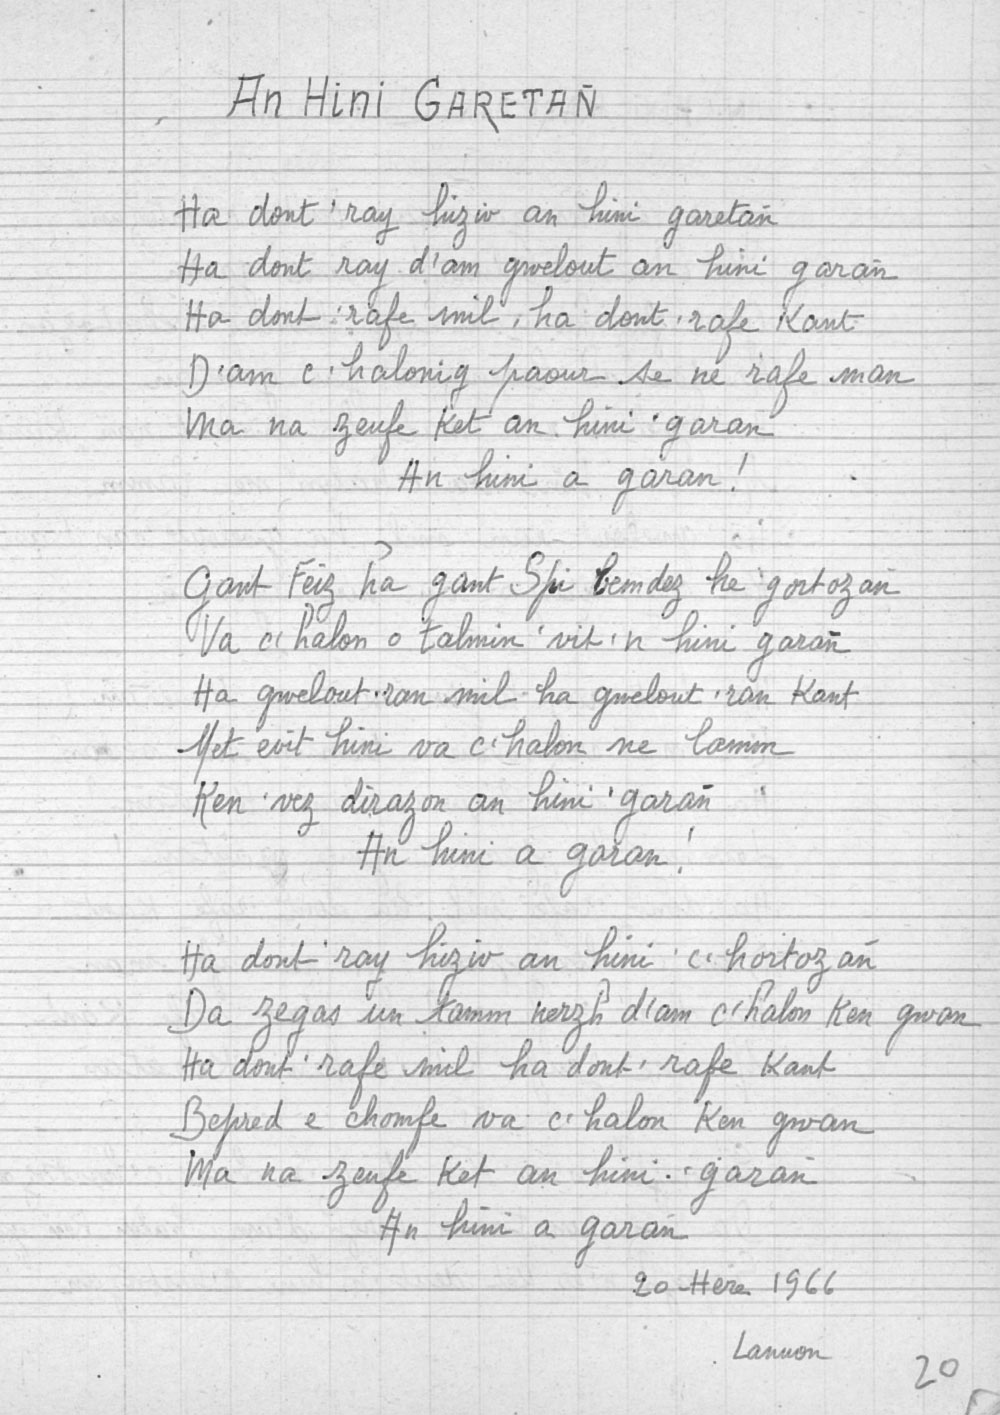 An Hini GARETAÑ
Ha dont 'ray hiziv an hini garetañ
Ha dont ray d'am gwelout an hini garañ
Ha dont 'rafe mil, ha dont 'rafe Kant
D'am c'halonig paour se ne rafe man
Ma na zeufe Ket an hini 'garan
An hini a garan!
Gant Feiz ha gant Spi bemdez he gortozan
Va c'halon o talmin 'vit 'n hini garañ
Ha gwelout 'ran mil ha gwelout 'ran Kant
Met evit hini va c'halon ne lamm
Ken 'vez dirazon an hini 'garañ
An hini a garan!
Ha dont 'ray hiziv an hini c'hortozañ
Da zegas un tamm nerzh d'am c'halon Ken gwan
Ha dont 'rafe mil ha dont 'rafe Kant
Bepred e chomfe va c'halon Ken gwan
Ma na zeufe Ket an hini 'garañ
An hini a garañ
20 Here 1966
Lannon
20